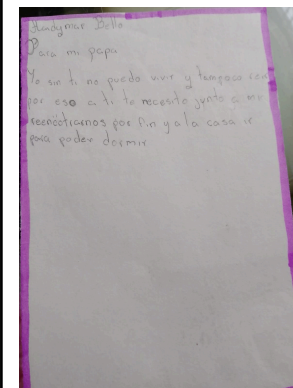 Handymar Bello
Para mi papa
Yo sin ti no puedo vivir y tampoco
por eso a ti te necesito junto a mi
reencotrarnos por fin y a la casa ir
para poder dormir